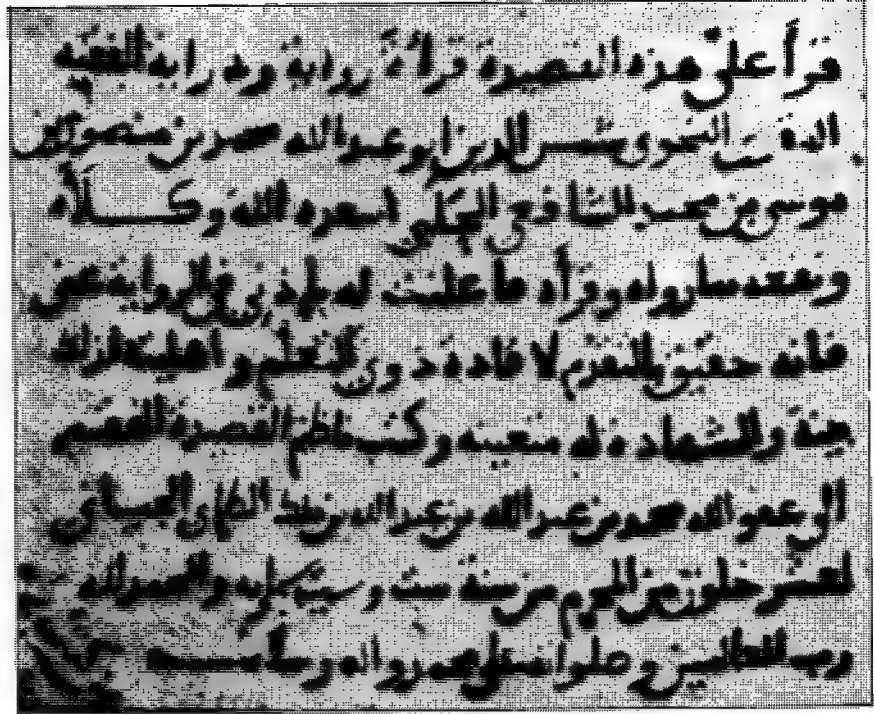 قرأ علي هذه القصيدة قراءة رواية ودراية الفقيه
النحوي شمس الدين أبو عبد الله محمد بن منصور بن
موسى بن محمد الشافعي الحلبي أسعده الله وكلأه
ومتعه بما رواه وقرأه ما علمت له
فانه حقيق بالتقدم لافادة ذوي التعلم و اهليته لذلك
بينة والشهادة له متعينة وكتب ناظم القصيدة الفقير
الى عفو الله محمد بن عبد الله بن عبد الله بن ملك الطائي الجياني
لعشر خلون من المحرم من سنة ست وستين وستمايه والحمد لله
رب العالمين وصلواته على محمد واله وسلامه